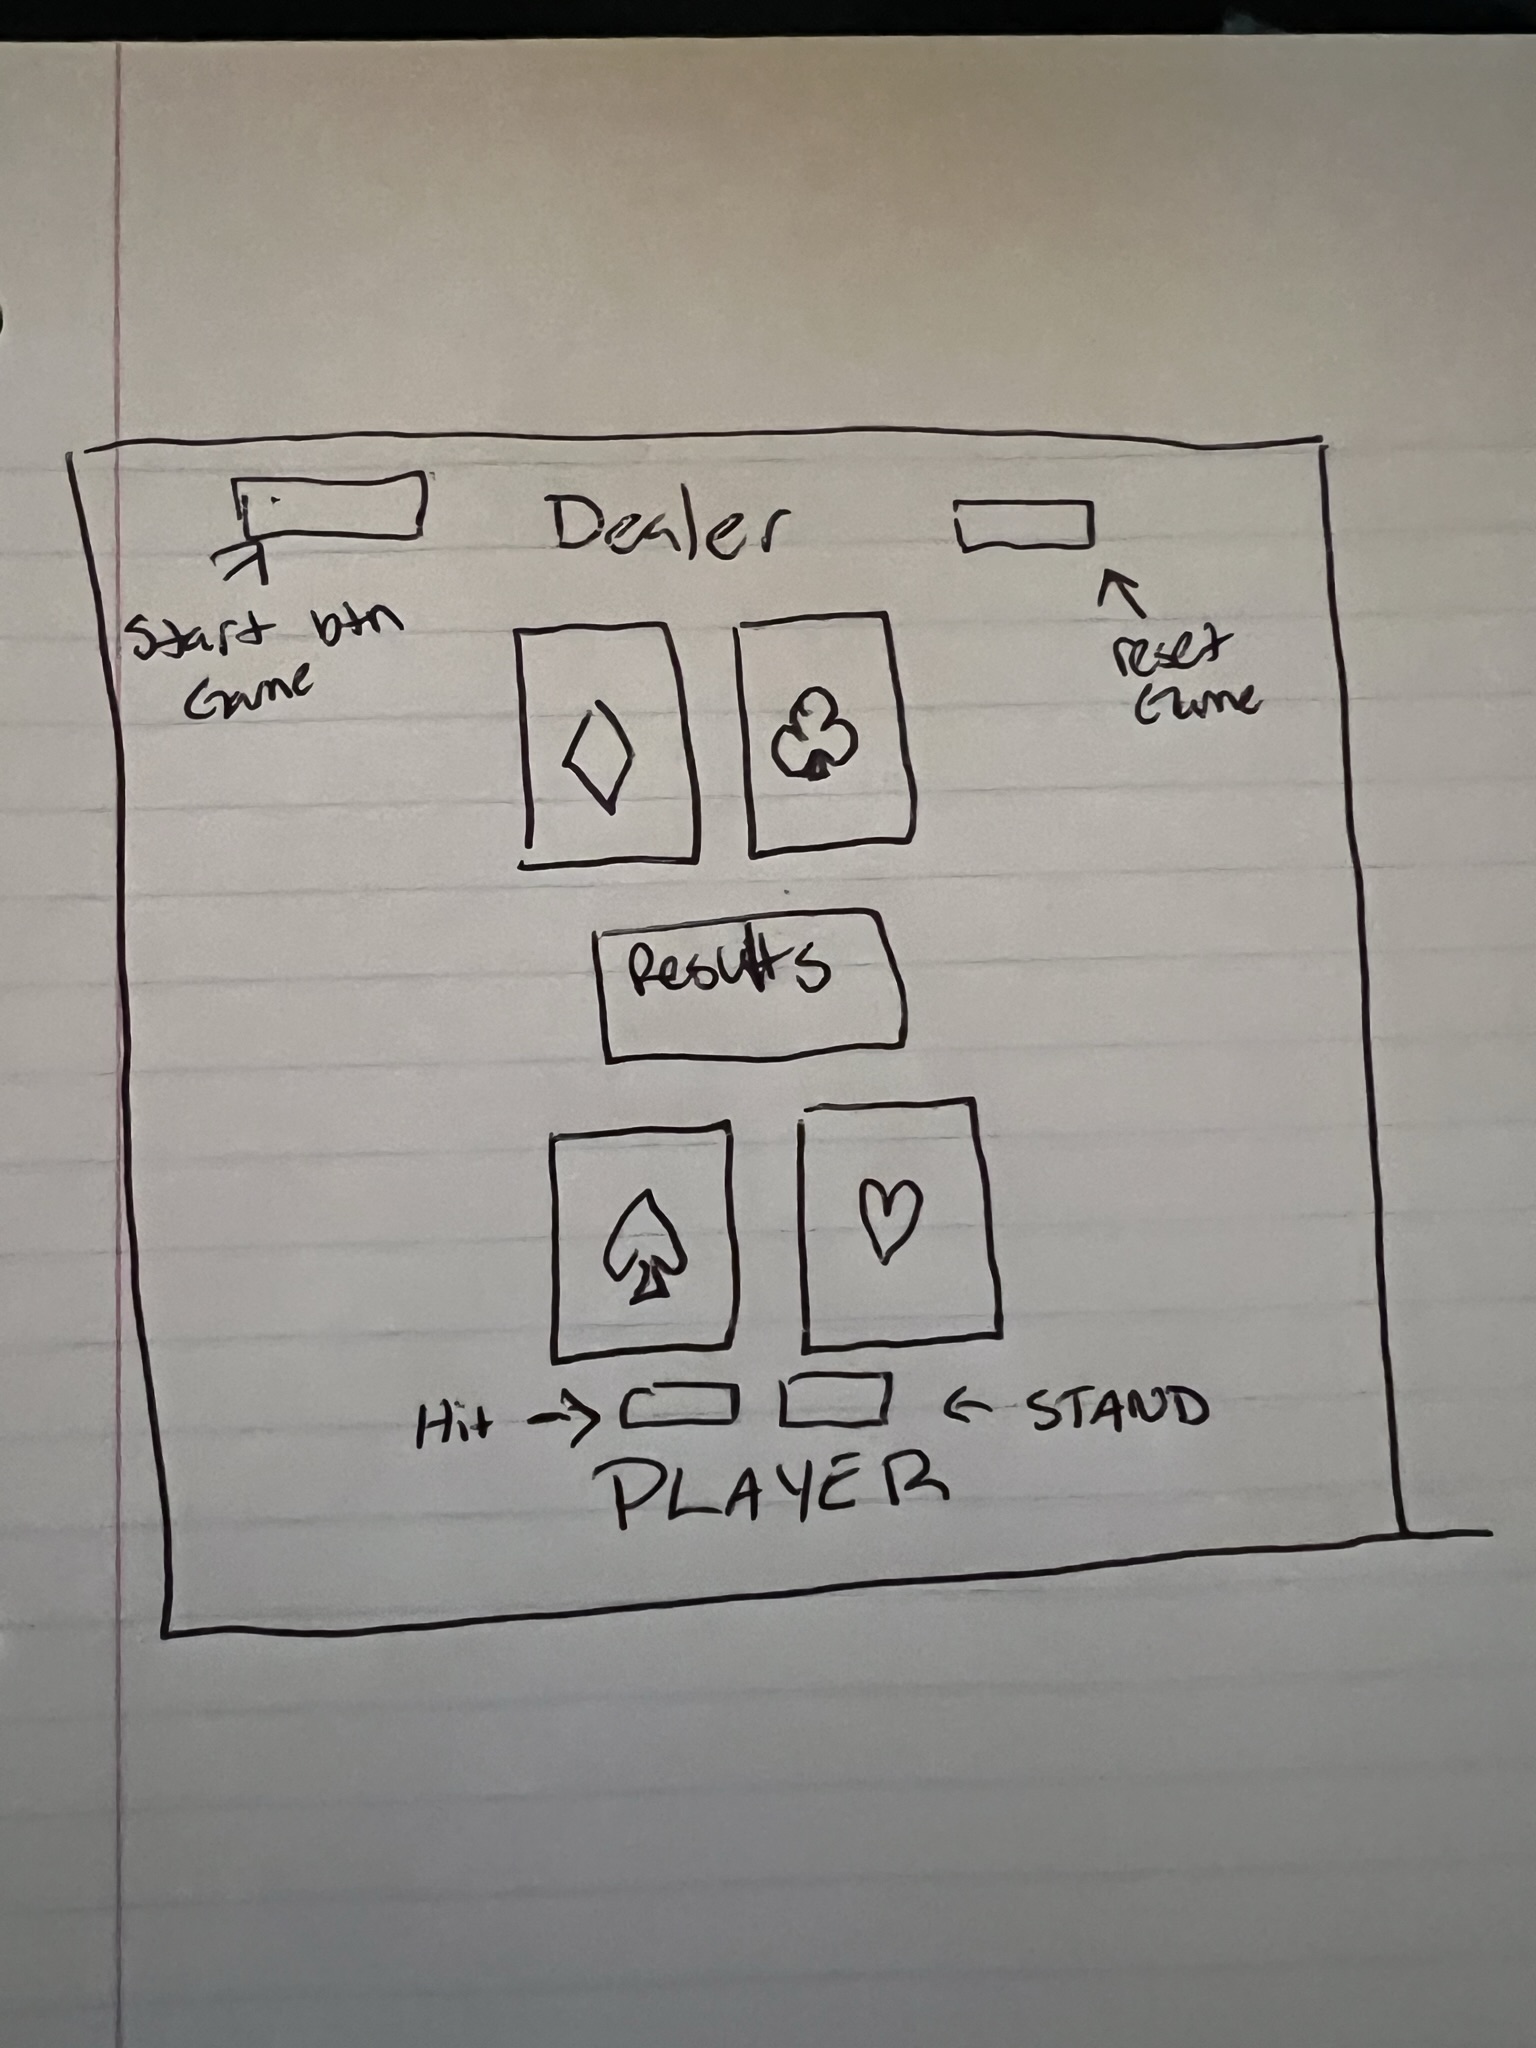 Dealer
Start btn
Game
reset
Game
Results
Hit
STAND
PLAYER